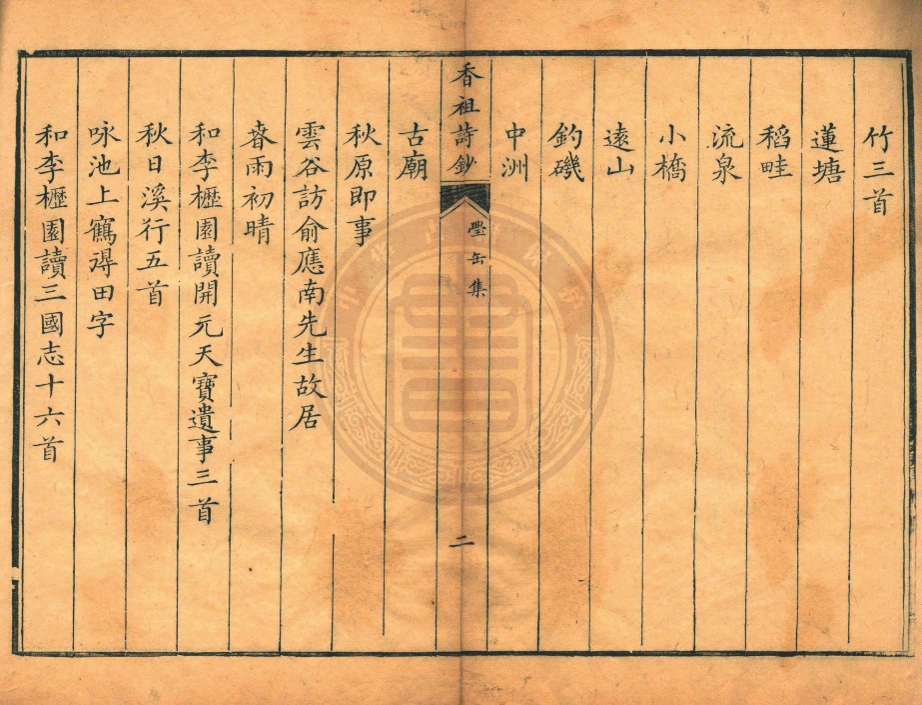 竹三首
蓮塘
稻畦
流泉
小橋
遠山
釣磯
中洲
香祖詩鈔
缶集
二
古廟
秋原即事
雲谷訪俞應南先生故居
春雨初晴
和李櫪園讀開元天寶遺事三首
秋日溪行五首
咏池上鶴得田字
和李櫪園讀三國志十六首